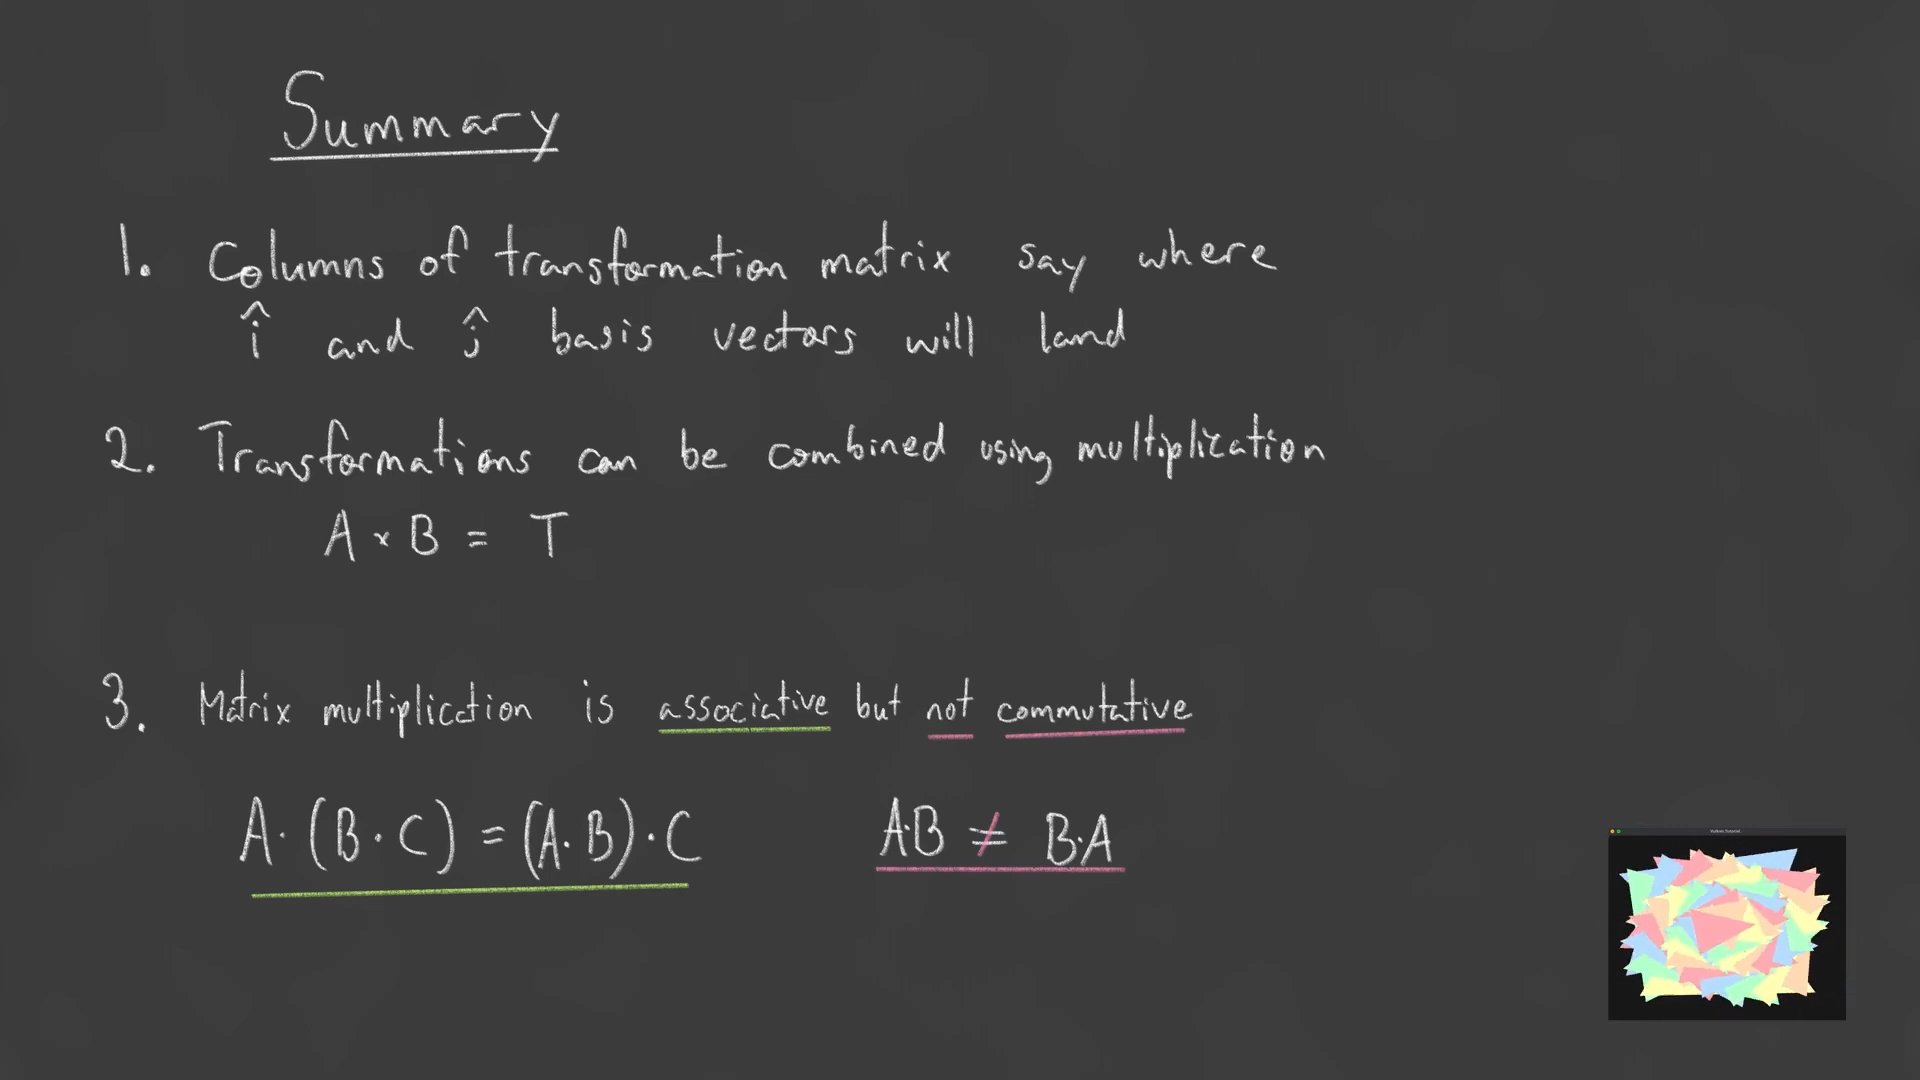 Summary
1. Columns of transformation matrix say where
î and ĵ basis vectors will land
2. Transformations can be combined using multiplication
A × B = T
3. Matrix multiplication is associative but not commutative
A·(B·C) = (A·B)·C
A·B ≠ B·A
Vulkan Tutorial